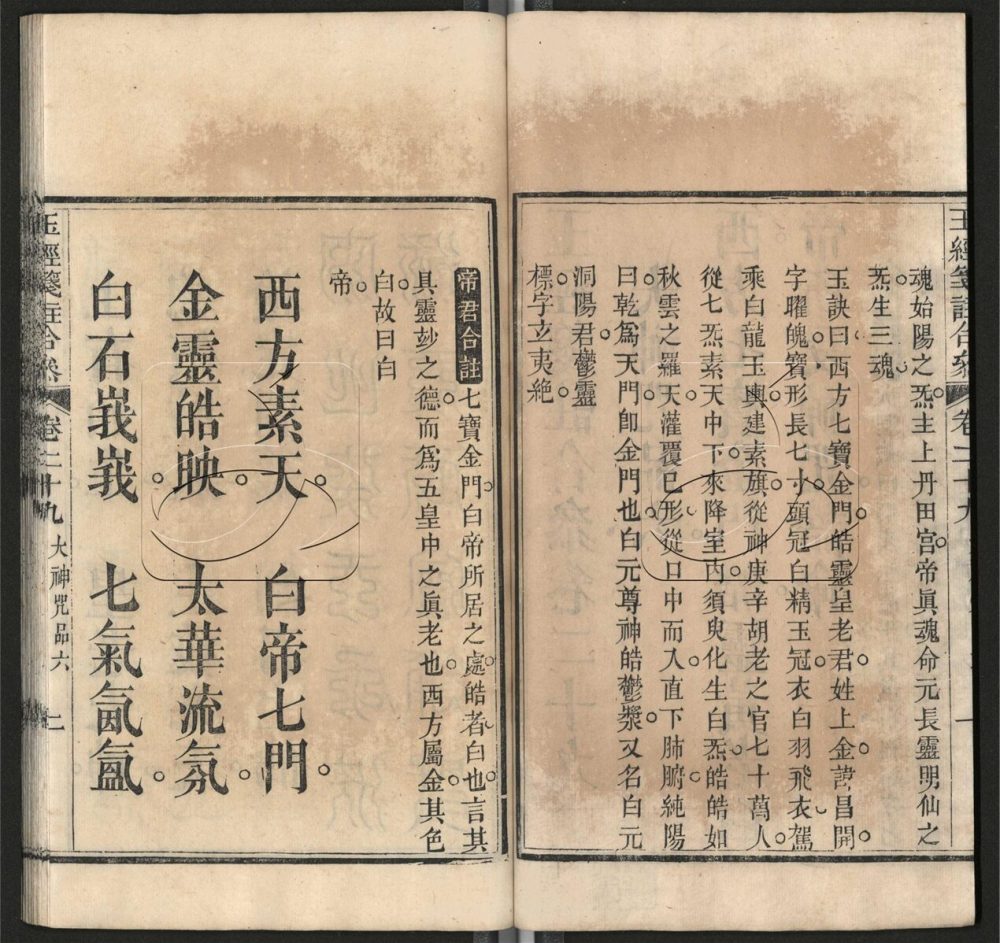 玉經箋註合參 卷二十九 一
魂始陽之炁主上丹田宮帝眞魂命元長靈明仙之
炁生三魂
玉訣曰西方七寶金門皓靈皇老君姓上金諱昌開
字曜魄寶形長七寸頭冠白精玉冠衣白羽飛衣駕
乘白龍玉輿建素旗從神庚辛胡老之官七十萬人
從七炁素天中下來降室內須臾化生白炁皓皓如
秋雲之羅天灌覆已形從口中而入直下肺腑純陽
曰乾爲天門卽金門也白元尊神皓鬱漿又名白元
洞陽君鬱靈
標字立夷絶
帝君合註 七寶金門白帝所居之處皓者白也言其
具靈玅之德而爲五皇中之眞老也西方屬金其色
白故曰白
帝
西方素天 白帝七門
金靈皓映 太華流氛
白石峩峩 七氣氤氳
玉經箋註合參 卷二十九 大神咒品六 二